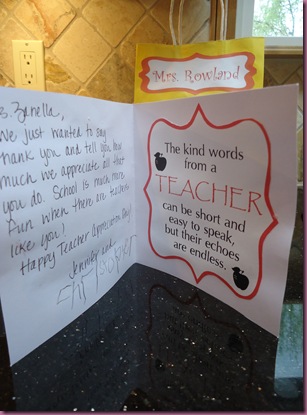 Mrs. Rowland
s. Zanella,
We just wanted to say
thank you and tell you how
much we appreciate all that
you do. School is much more
fun when there are teachers
like you!
Happy Teacher Appreciation Day!
Jennifer and
Christopher
The kind words
from a
TEACHER
can be short and
easy to speak,
but their echoes
are endless.